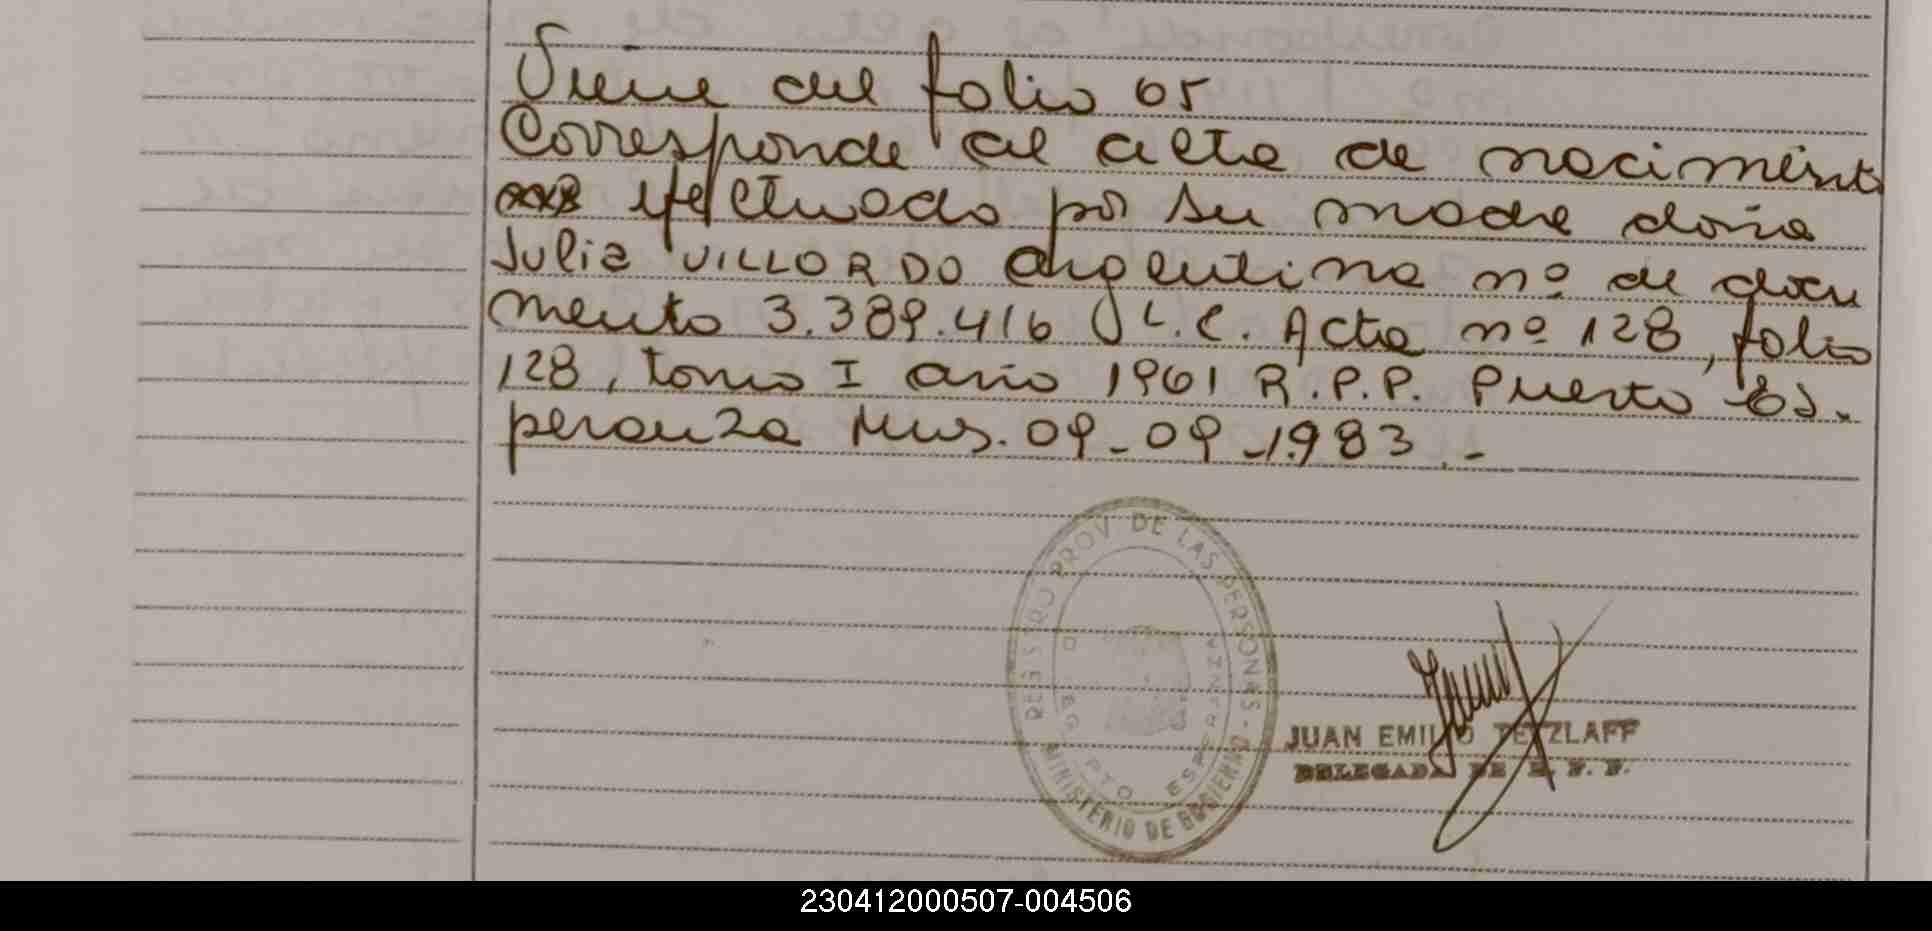 Viene del folio 65
Corresponde al acta de nacimient
xxx efectuado por su madre doña
Julia VILLORDO argentina nº de docu
mento 3.389.416 L.C. Acta nº 128, folio
128, tomo I año 1961 R.P.P. Puerto Es.
peranza Mns. 09-09-1983.-
REGISTRO PROV. DE LAS PERSONAS - MINISTERIO DE GOBIERNO
PTO ESPERANZA
JUAN EMILIO TETZLAFF
DELEGADA DE R. P. P.
230412000507-004506